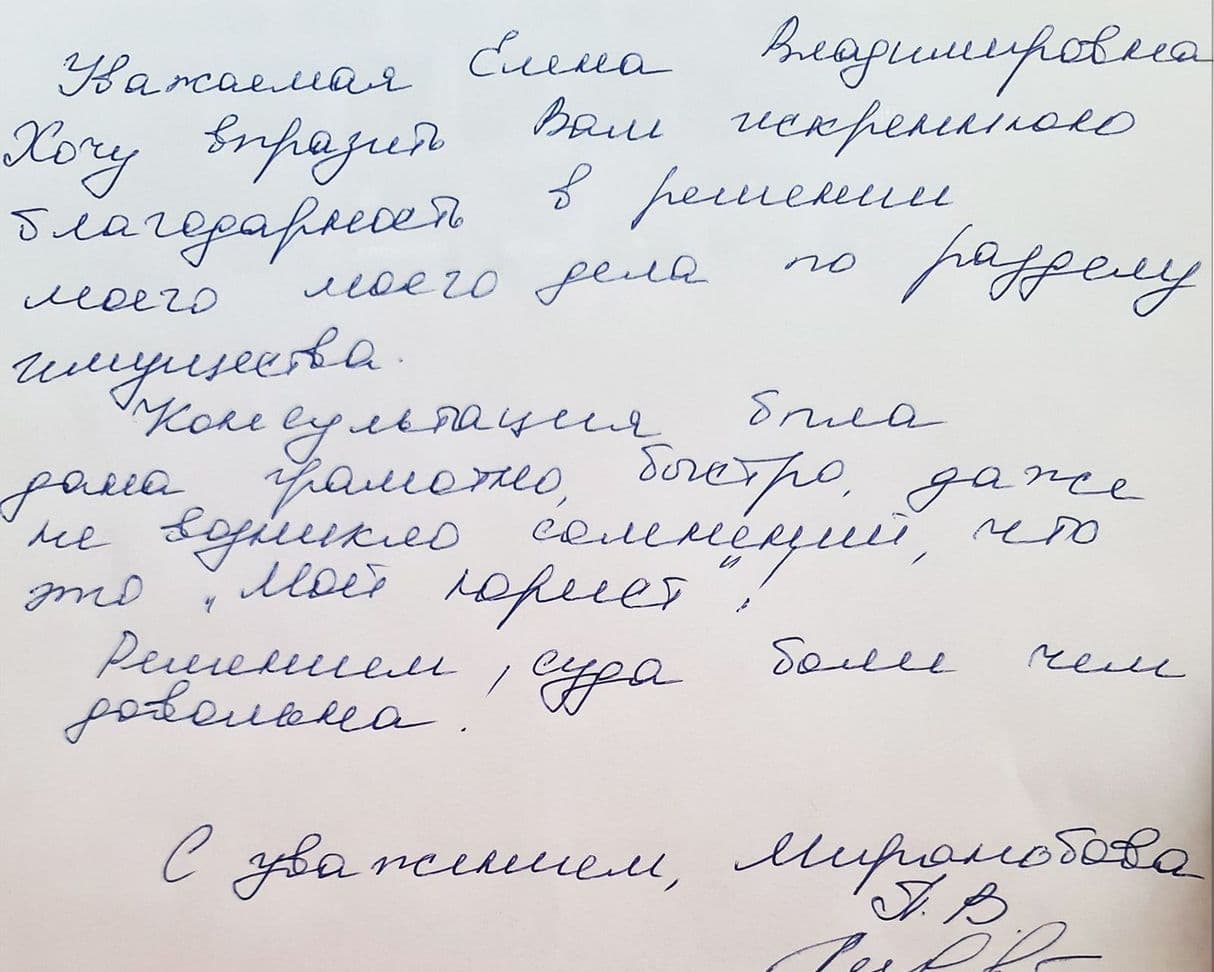 Уважаемая Елена Владимировна
Хочу выразить Вам искреннюю
благодарность в решении
моего моего дела по разделу
имущества.
Консультация была
дана грамотно, быстро, даже
не возникло сомнений, что
это „Мой юрист"!
Решением, суда более чем
довольна.
С уважением,
В.